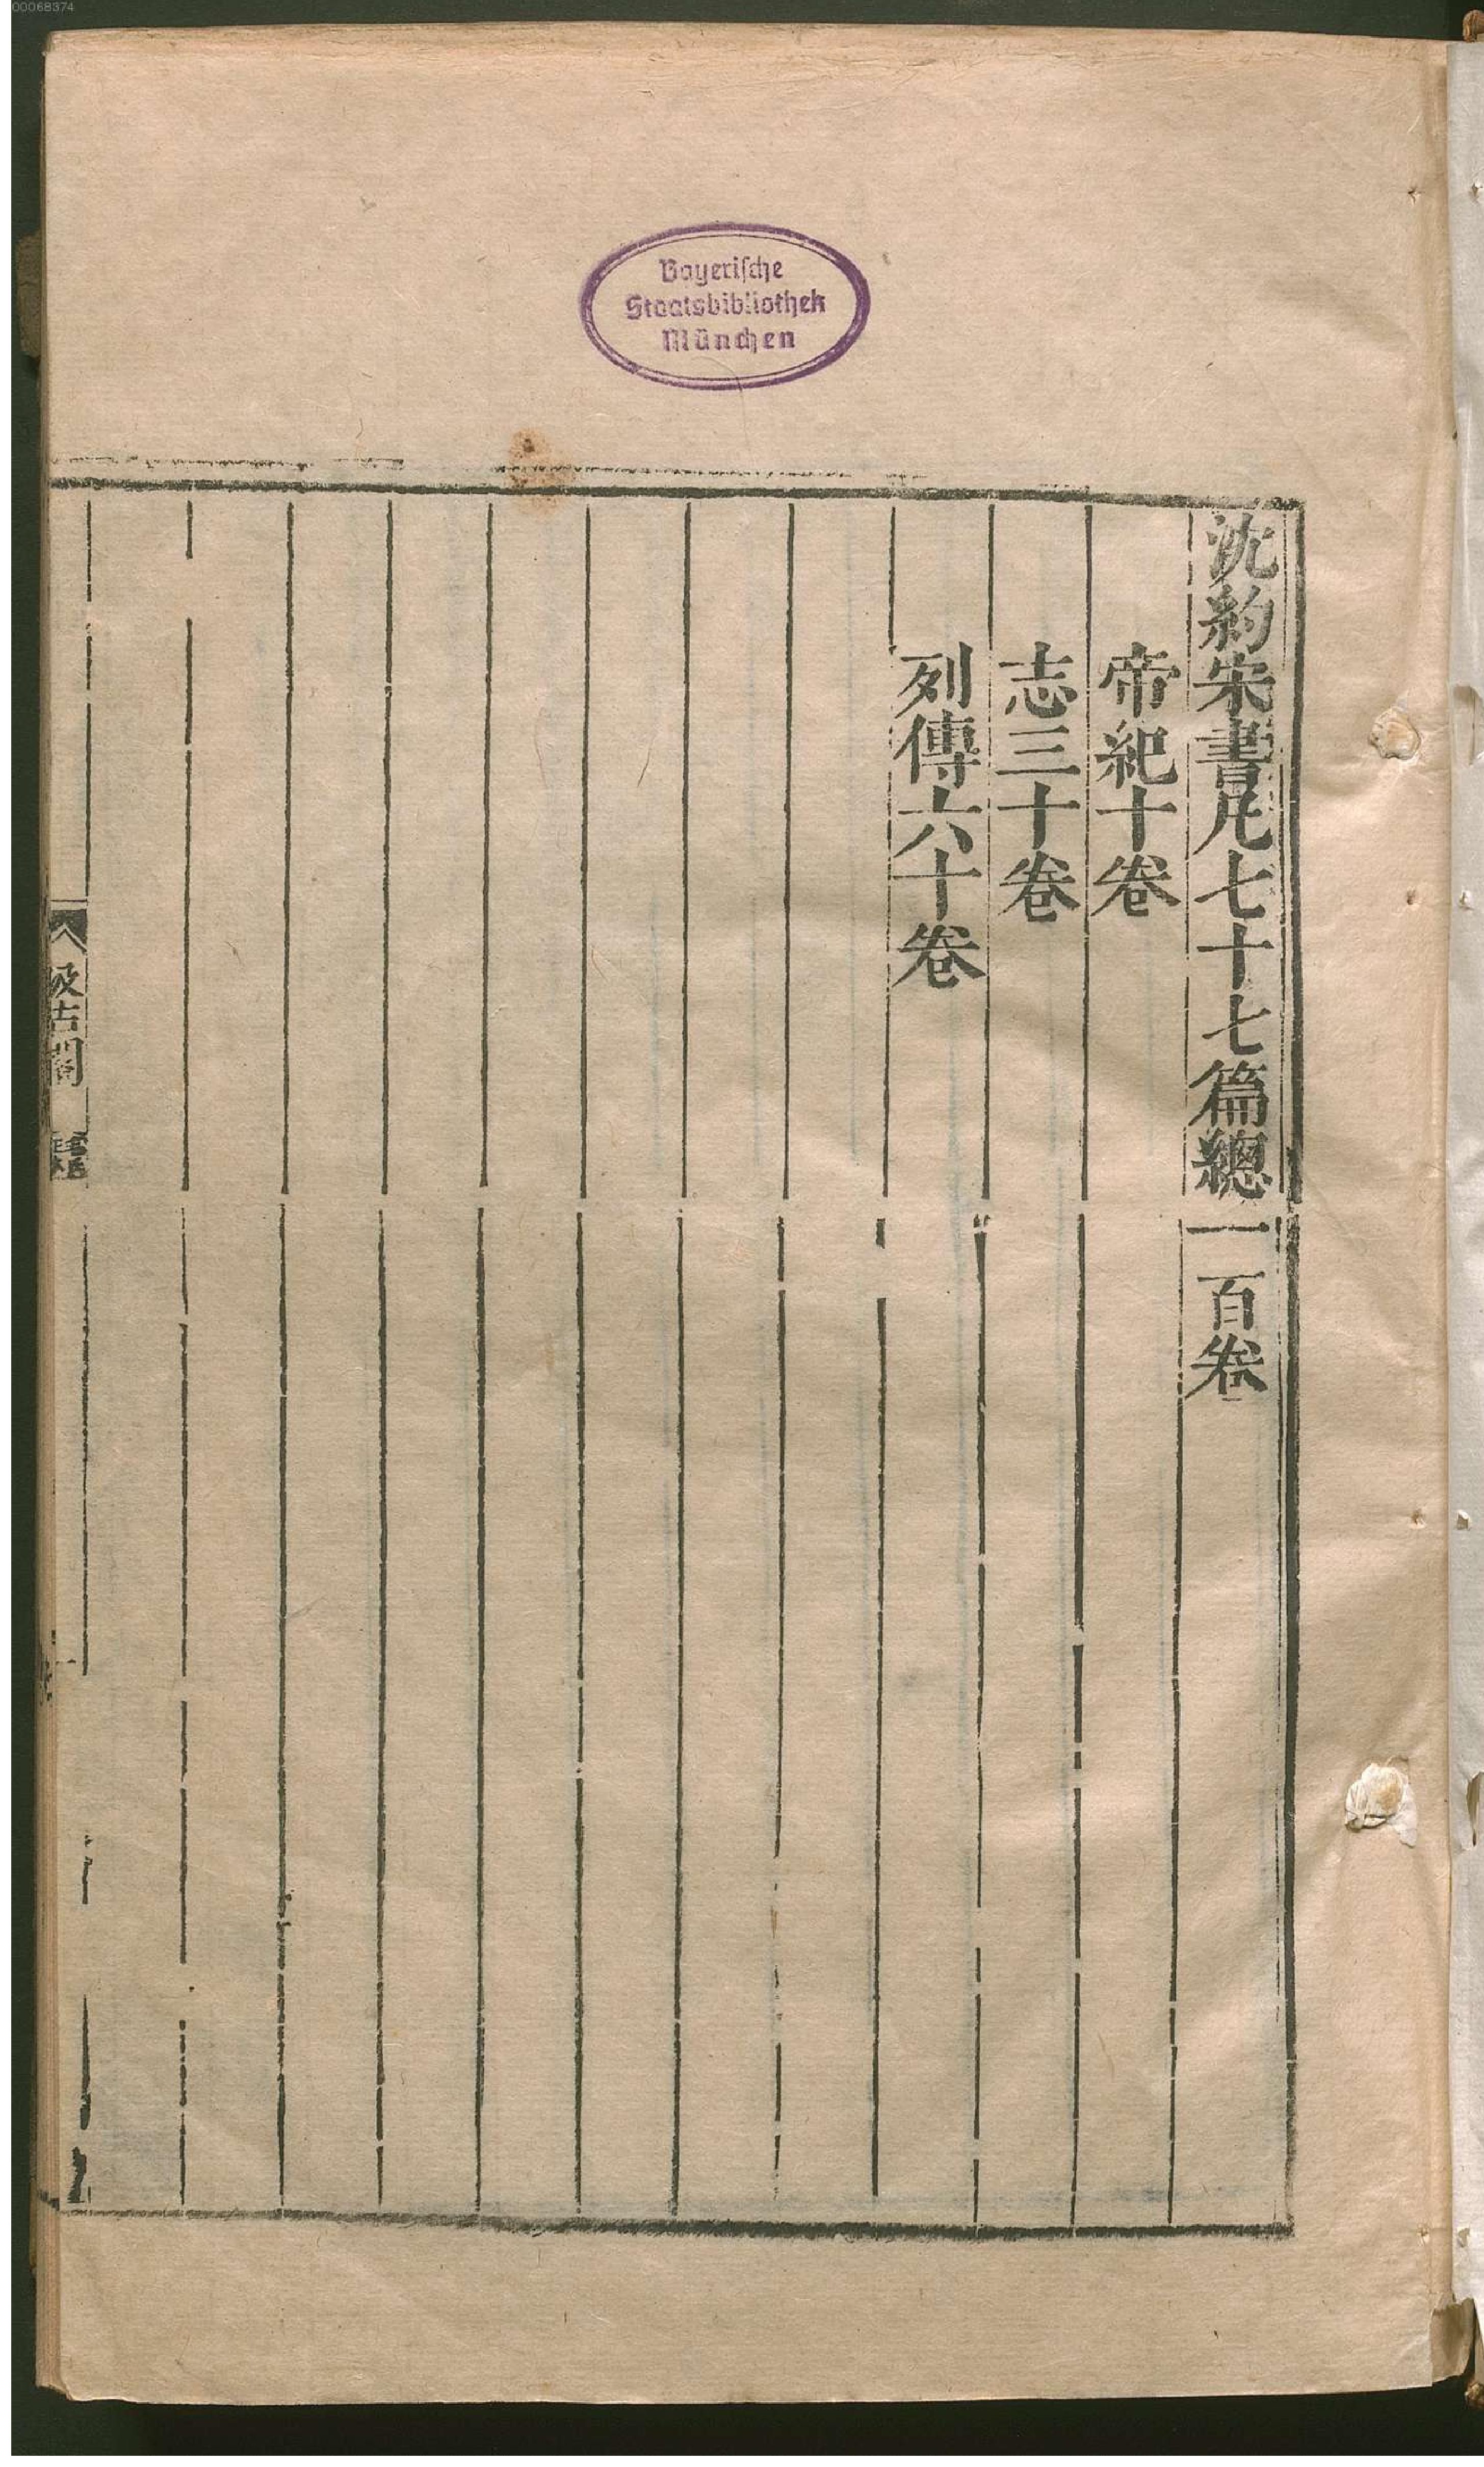 00068374
Bayerische
Staatsbibliothek
München
沈約宋書凡七十七篇總一百卷
帝紀十卷
志三十卷
列傳六十卷
汲古閣